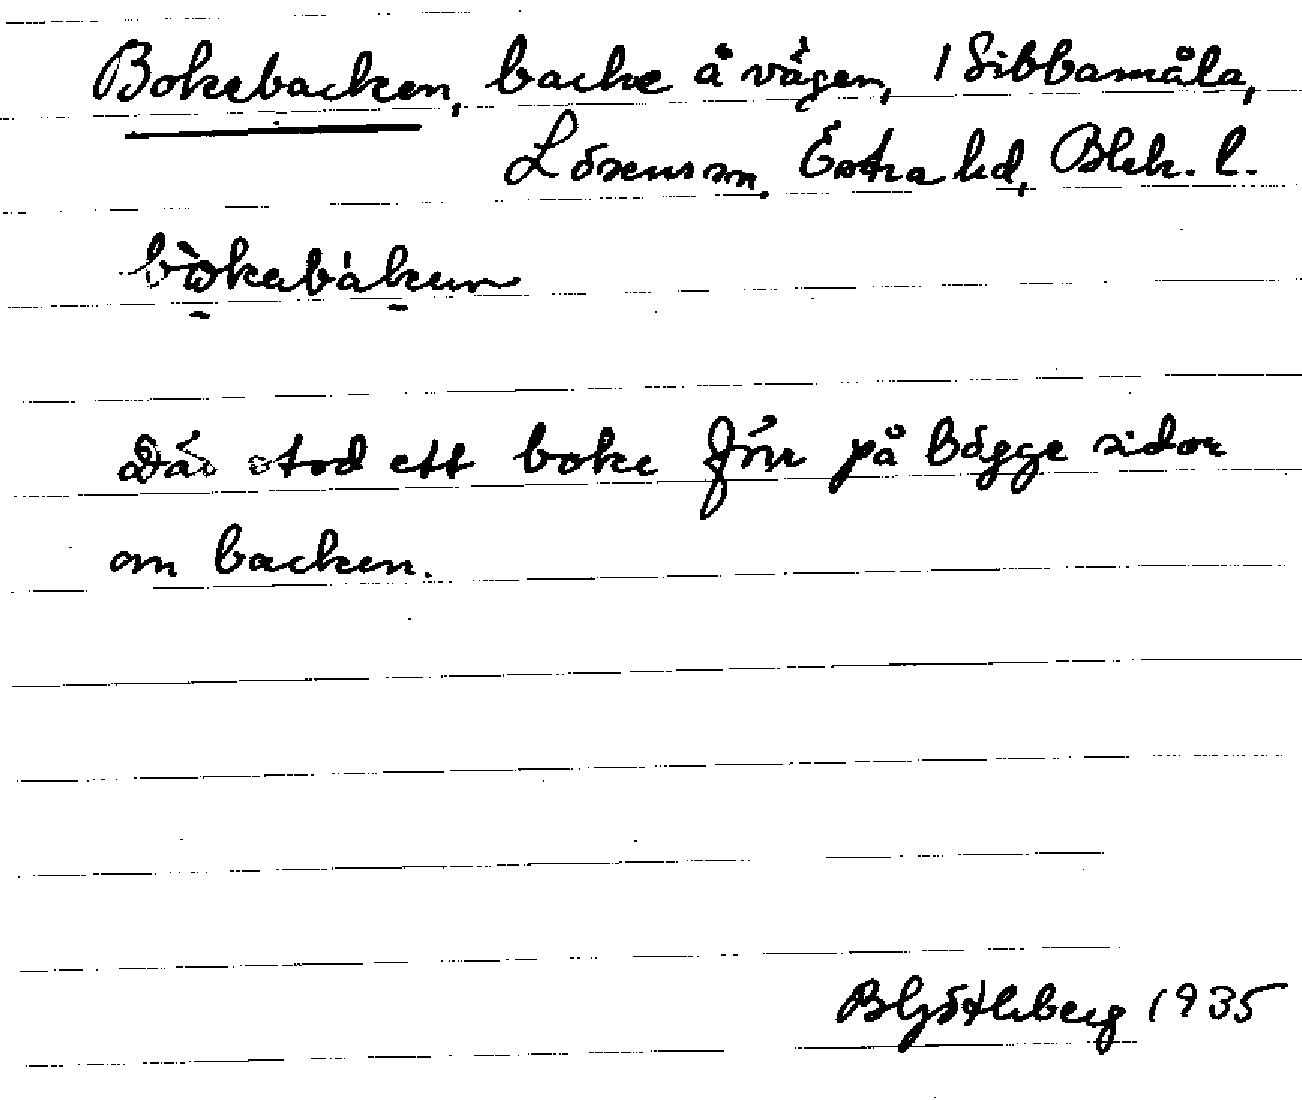 Bokebacken, backe å vägen, 1 Sibbamåla,
Lösens sn. Östra hd, Blek. l.
Där stod ett boke förr på bägge sidor
om backen.
1935